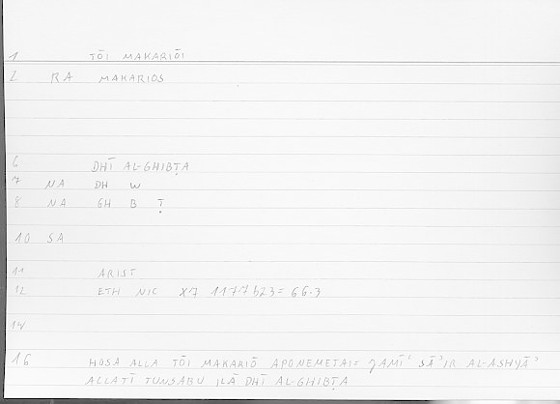 1 TŌI MAKARIŌI
2 RA MAKARIOS
6 DHĪ AL-GHIBṬA
7 NA DH W
8 NA GH B Ṭ
10 SA
11 ARIST
12 ETH NIC X7 1177b23 = 66.3
14
16 HOSA ALLA TŌI MAKARIŌ APONEMETAI = JAMĪʿ SĀʾIR AL-ASHYĀʾ
ALLATĪ TUNSABU ILĀ DHĪ AL-GHIBṬA